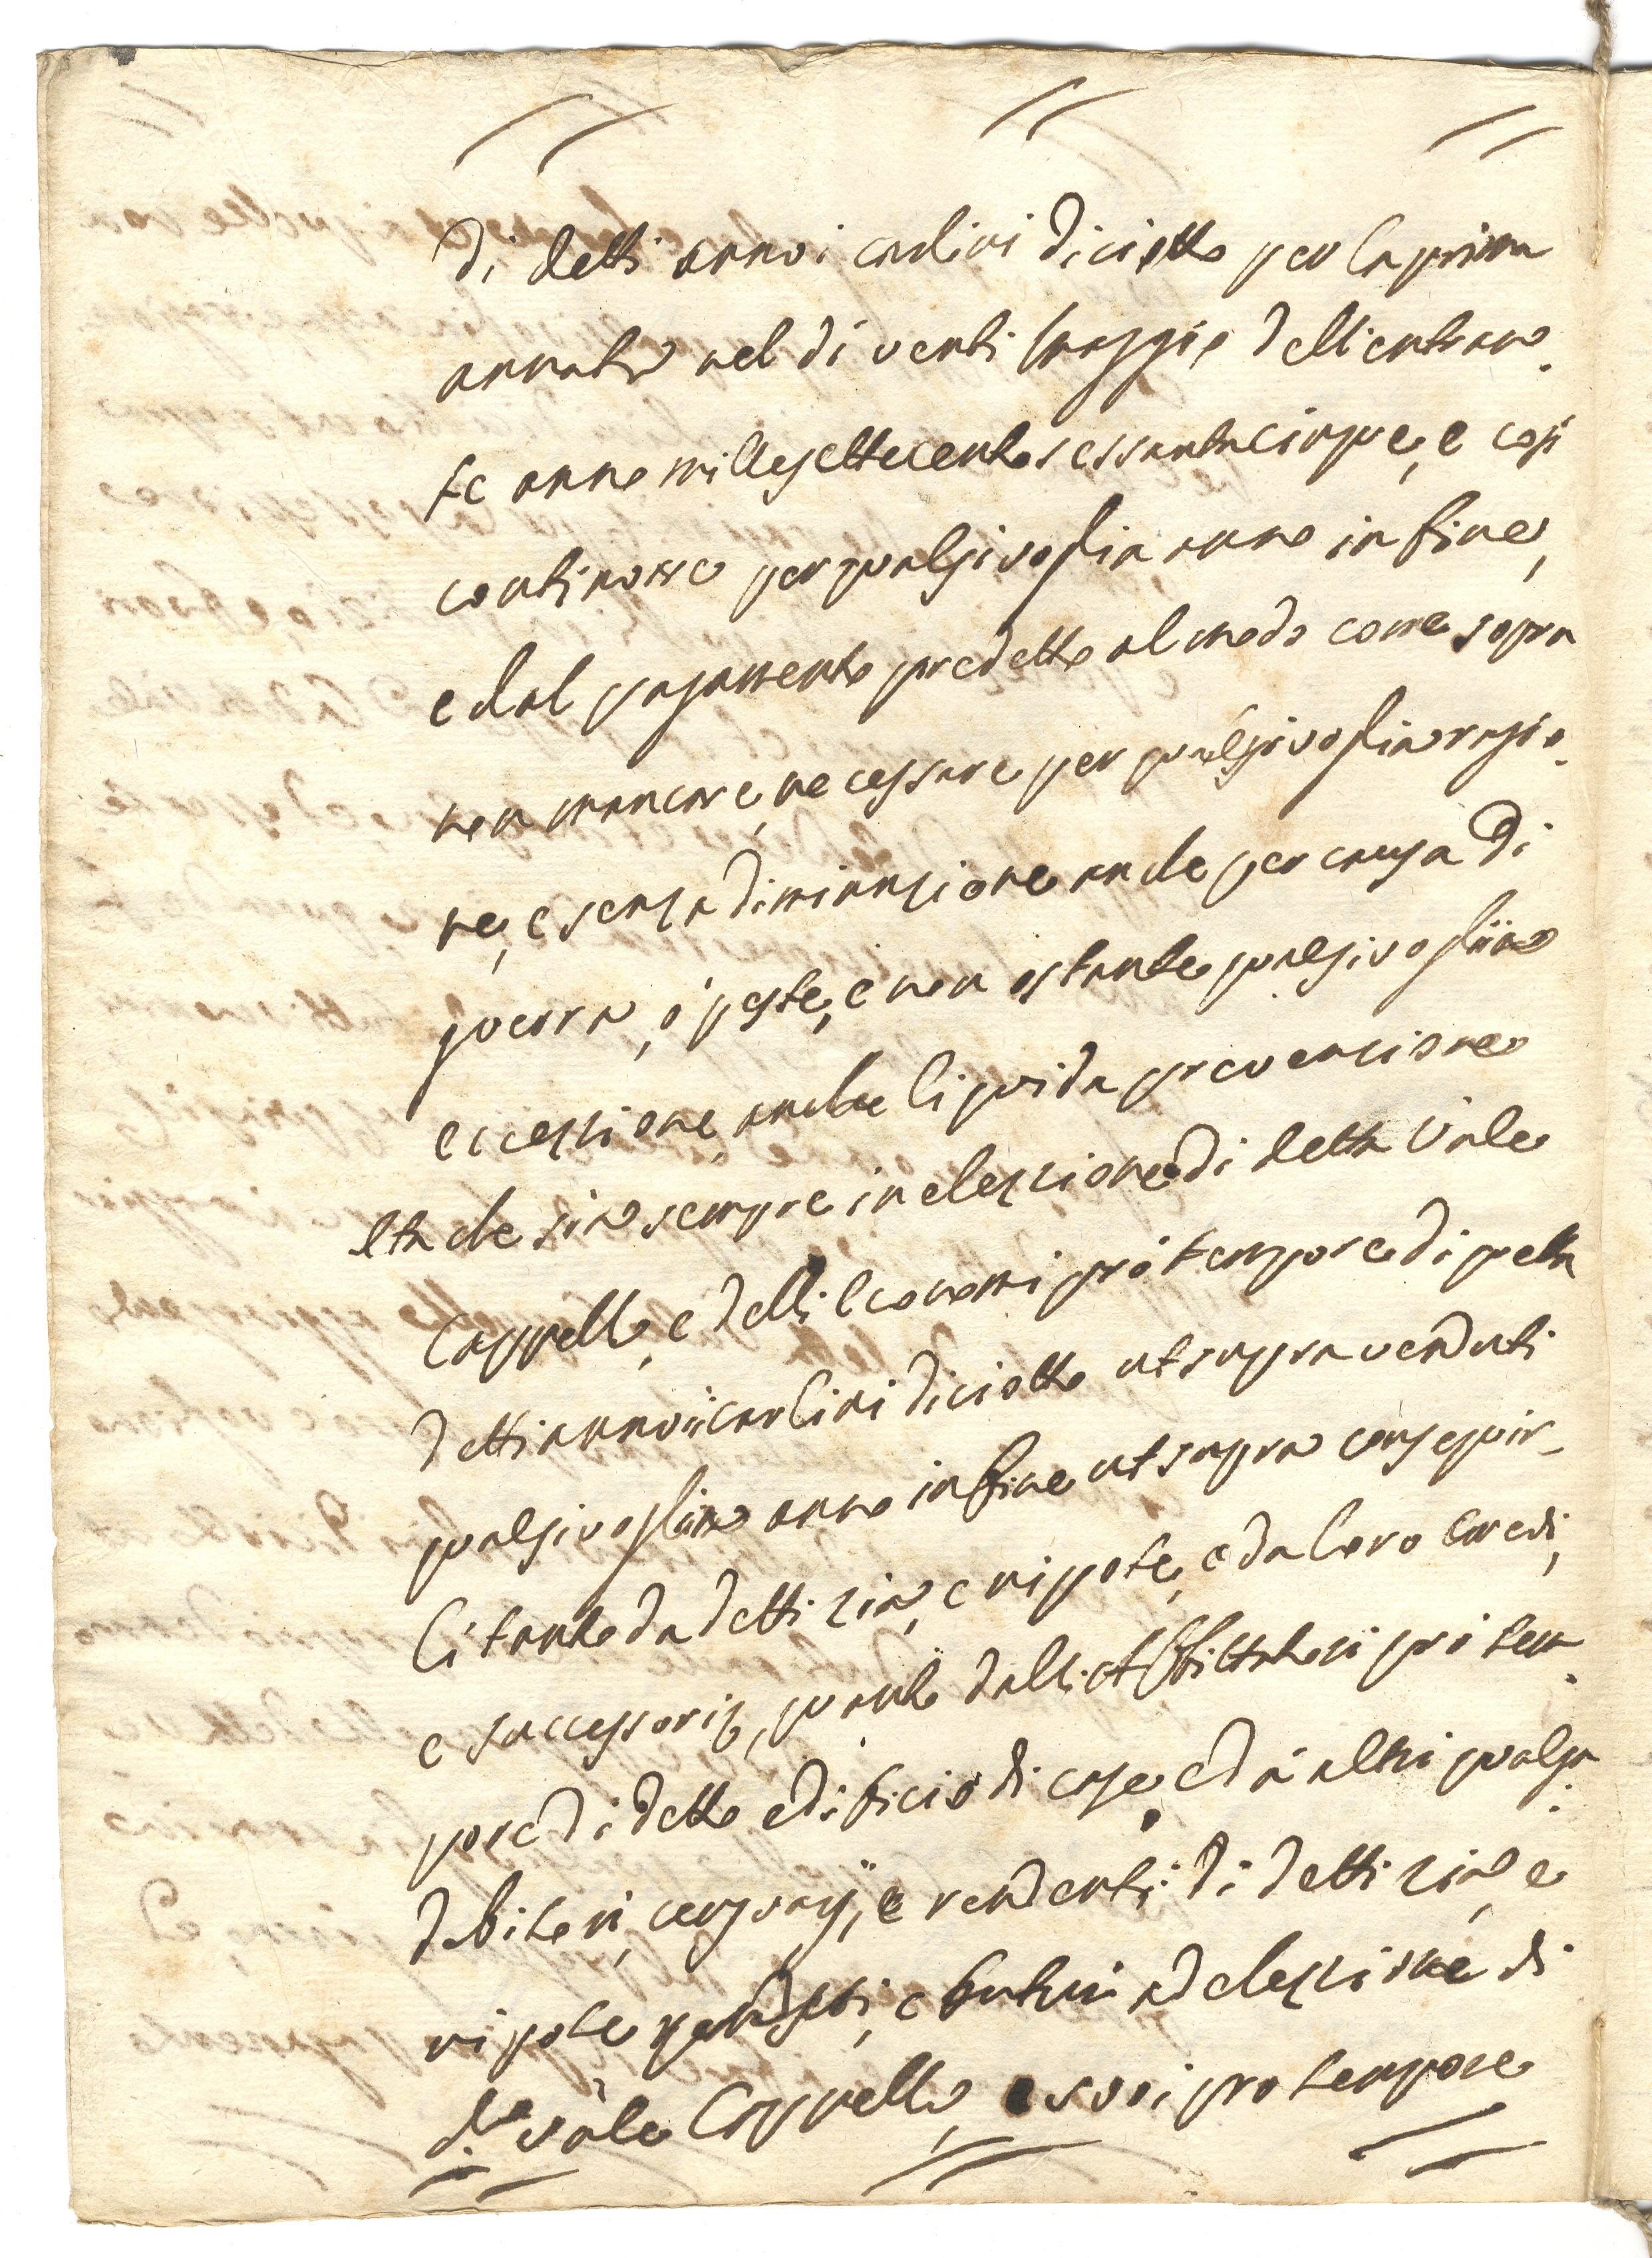 di detti annui carlini diciotto per la prima
annata nel di venti Maggio dell'entran
te anno millesettecentosessantacinque, e così
continovare per qualsivoglia anno in fine,
e dal pagamento predetto al modo come sopra
non mancare, ne cessare per qualsivoglia ragio
ne, e senza diminuzione anche per causa di
guerra, ò peste, e non ostante qualsivoglia
eccezzione anche liquida prevenzione
et che sia sempre in elezzione di detta V'ale
Cappella, e delli Economi prò tempore di quella
detti annui carlini diciotto ut supra venduti
qualsivoglia anno in fine ut supra conseguir
li tanto da detti zia, e nipote, e da loro eredi,
e successori, quanto dalli Affittatori prò tem
pore di detto edificio di case, ed à altri qualsa
debitori, censuarij, e rendenti di detti zia, e
nipote venditi, e futuri ad elezzione di
d.a v'ale Cappella, e suoi pro tempore